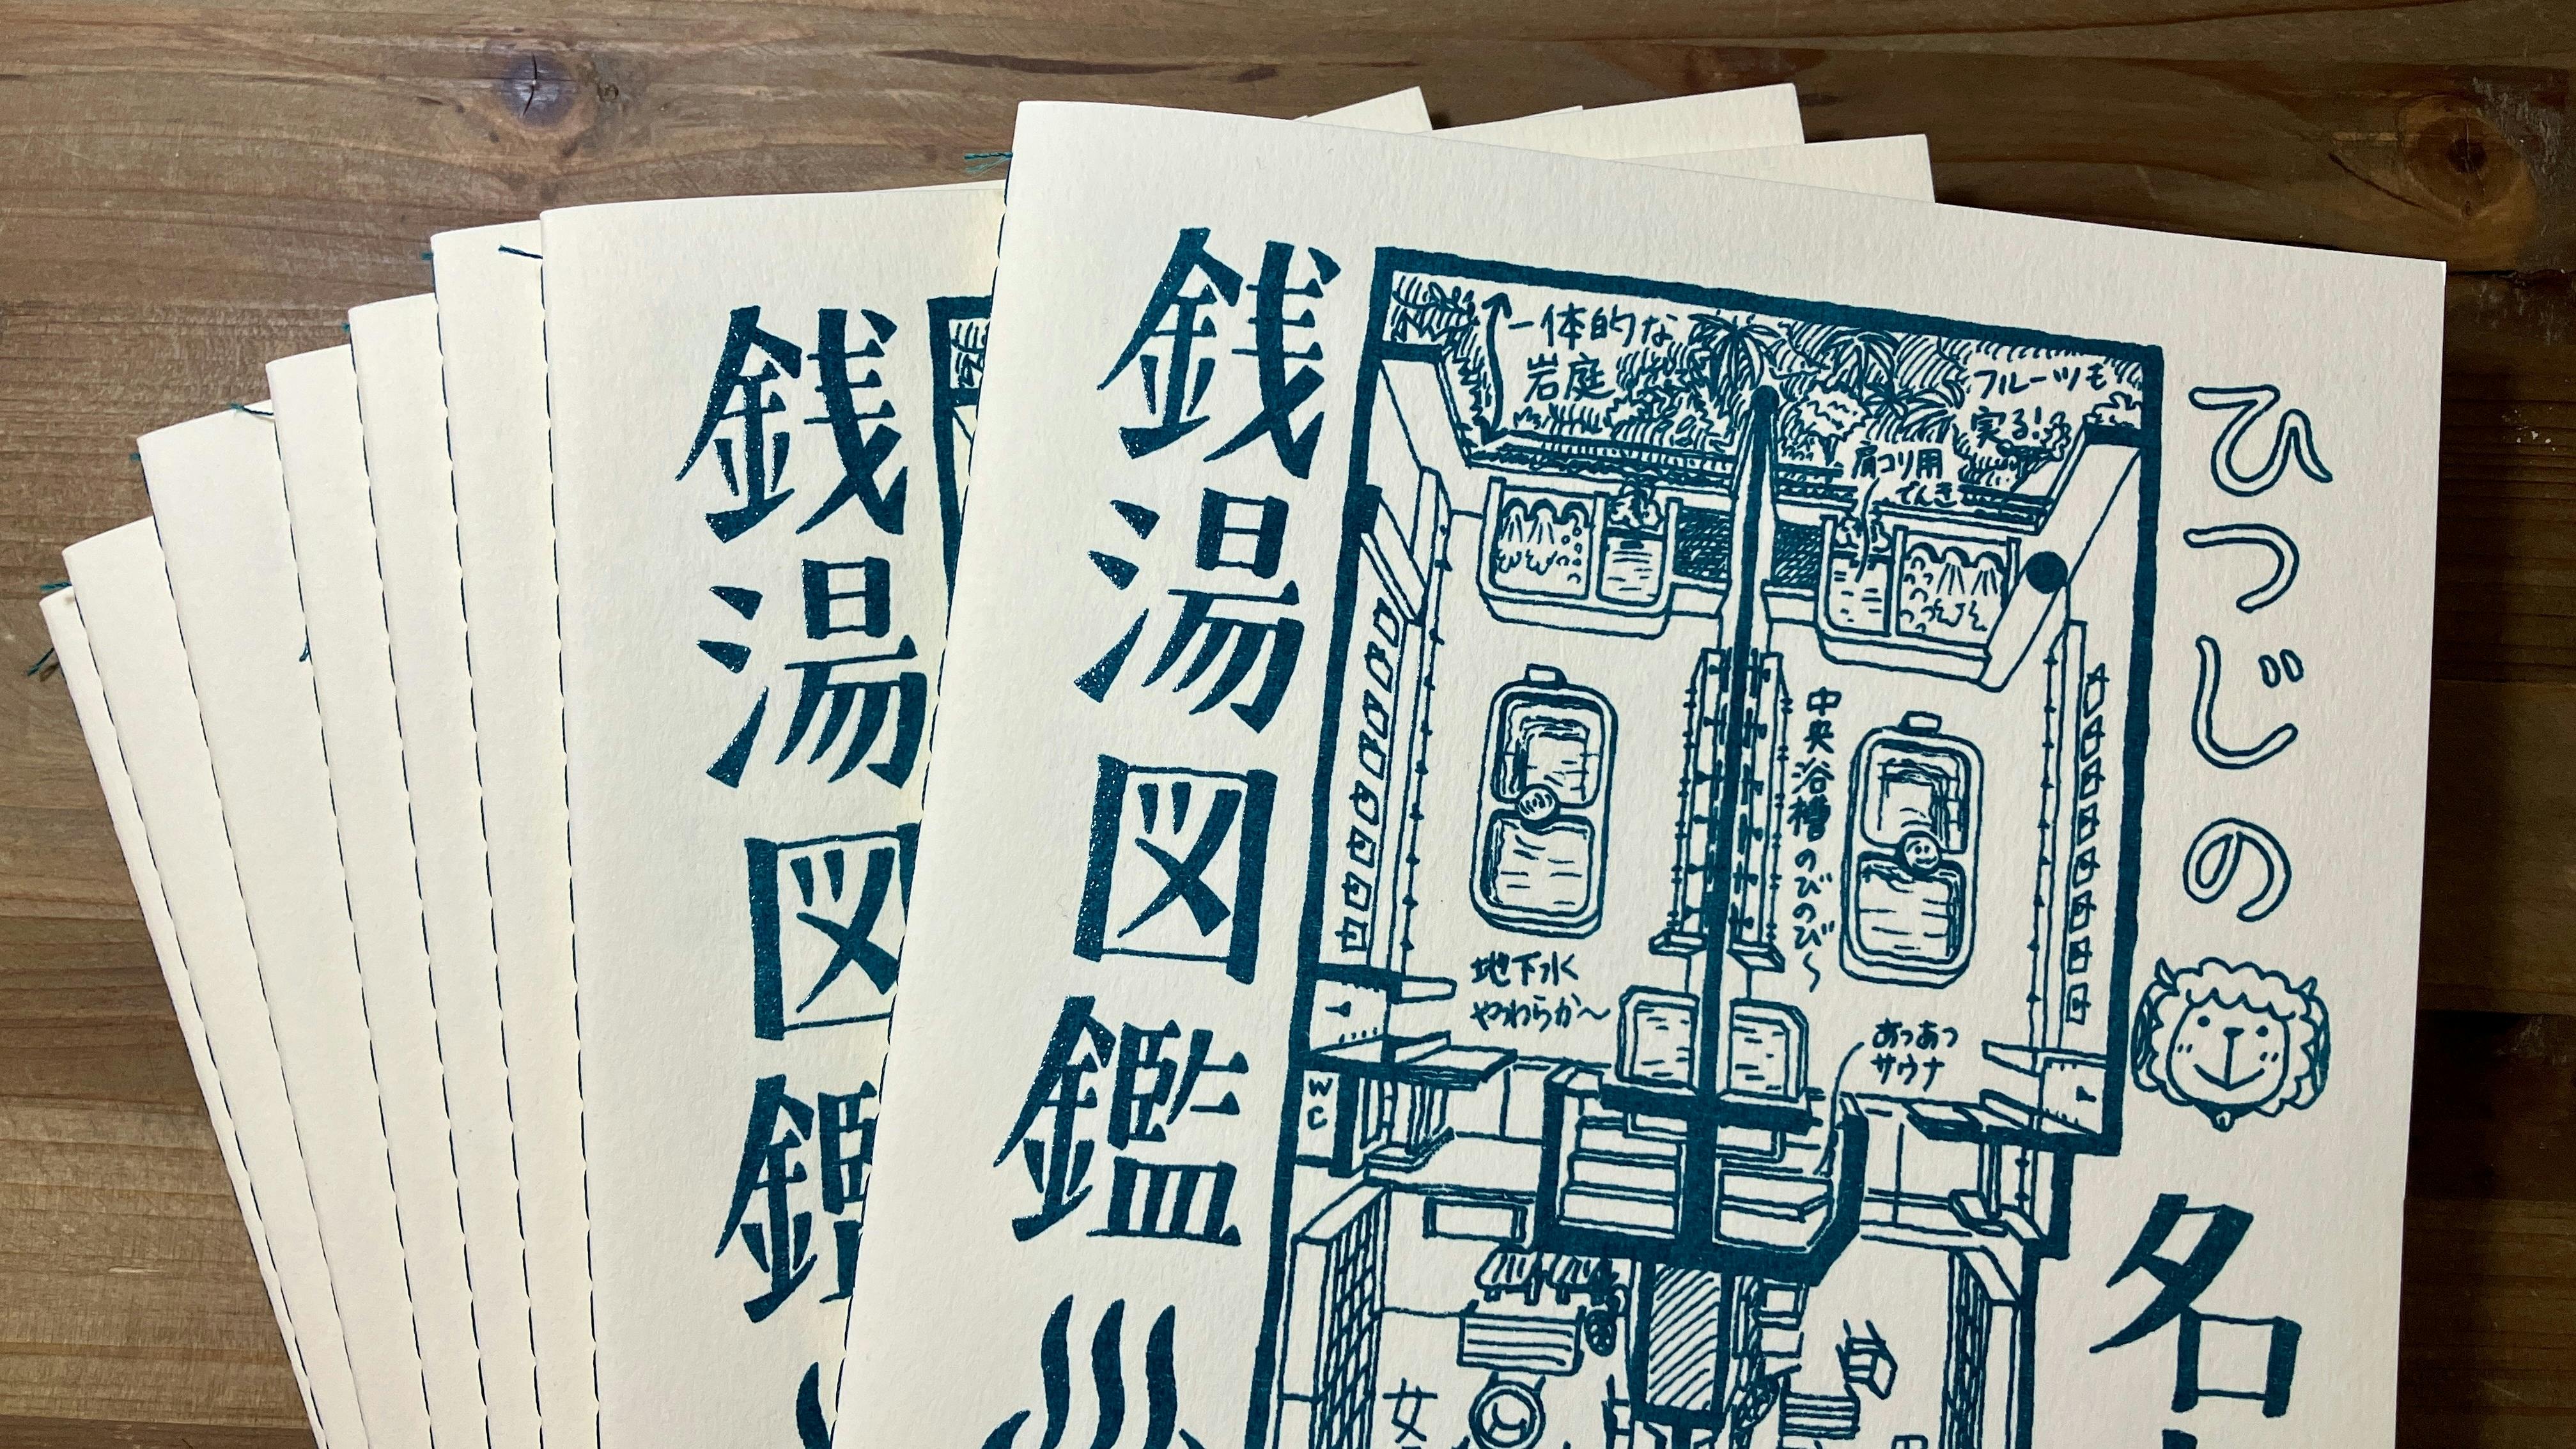 ひつじの
名
一体的な
岩庭
フルーツも
実る!
肩コリ用
でんき
中央浴槽のびのび〜
地下水
やわらか〜
あつあつ
サウナ
WC
女
銭湯図鑑
銭湯図鑑